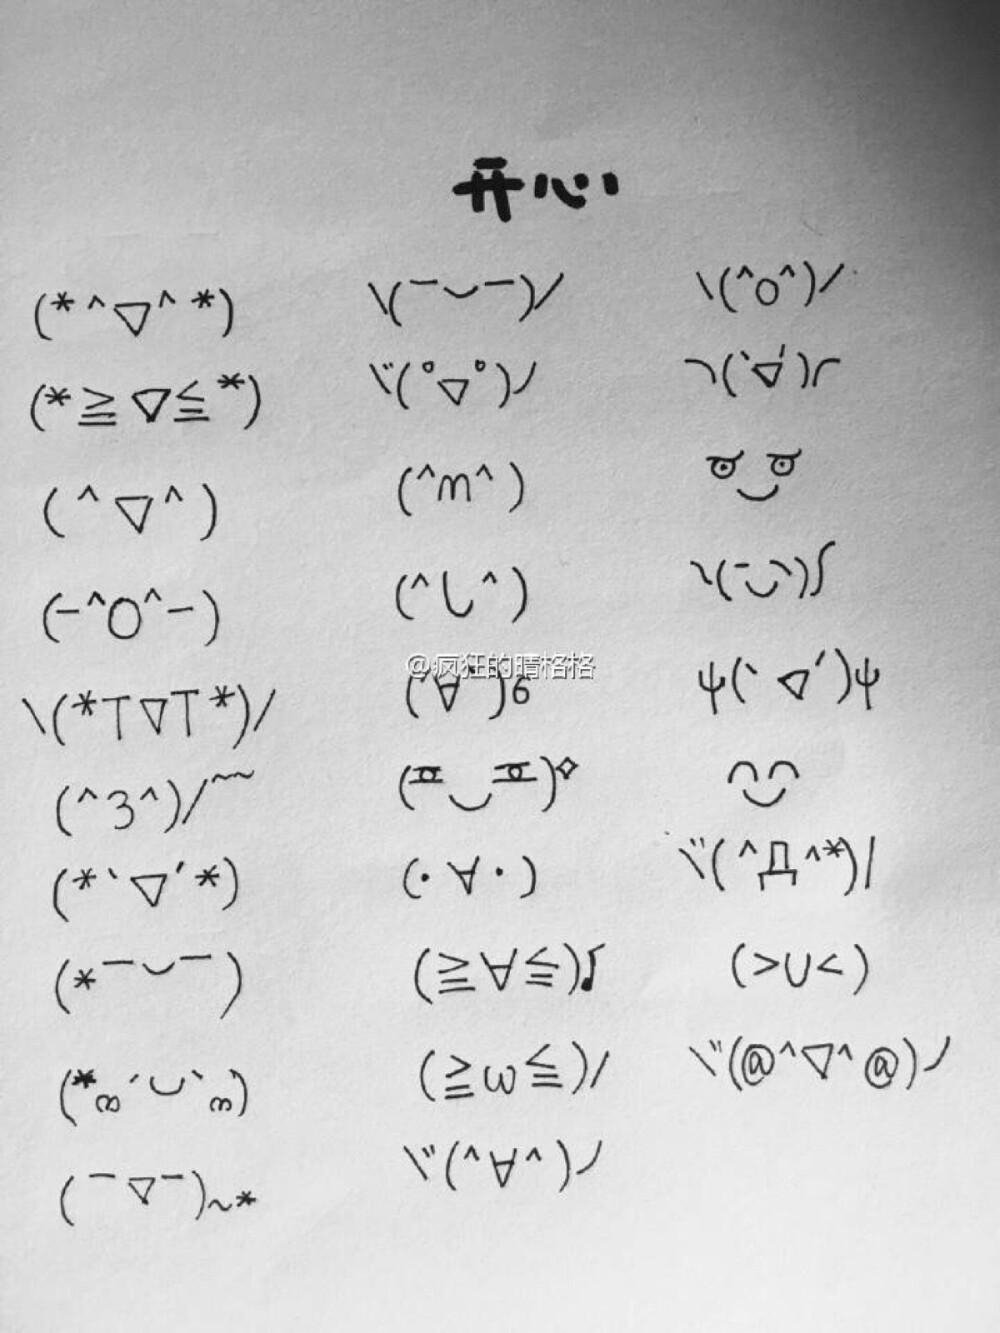 开心
(*^▽^*) \(￣︶￣)/ \(^o^)/
(*≧▽≦*) ヾ(°▽°)ノ ╮(`▽′)╭
(^▽^) (^m^)
(-^O^-) (^し^)
@疯狂的晴格格
\(*T▽T*)/ (′∀`)6 ψ(`▽′)ψ
(^3^)/~~
(*`▽′*) (·∀·) ヾ(^Д^*)/
(*￣︶￣) (≧∀≦)♪ (>U<)
(*ෆ´︶`ෆ) (≧ω≦)/ ヾ(@^▽^@)ノ
(￣▽￣)~* ヾ(^∀^)ノ